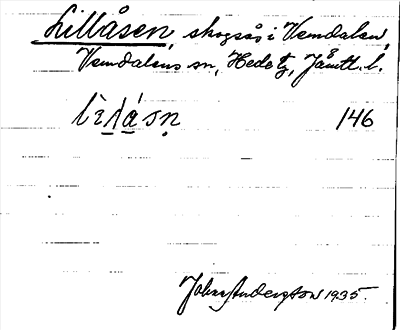 Lillåsen, skogsås i Vemdalen,
Vemdalens sn, Hede tg, Jämtl. l.
lìlåsn̥ 146
John Anderson 1935.